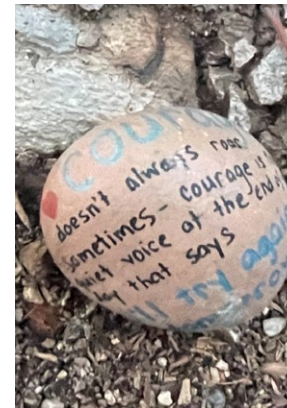 COURA
doesn't always roar
Sometimes - courage is
quiet voice at the end of
day that says
I'll try again